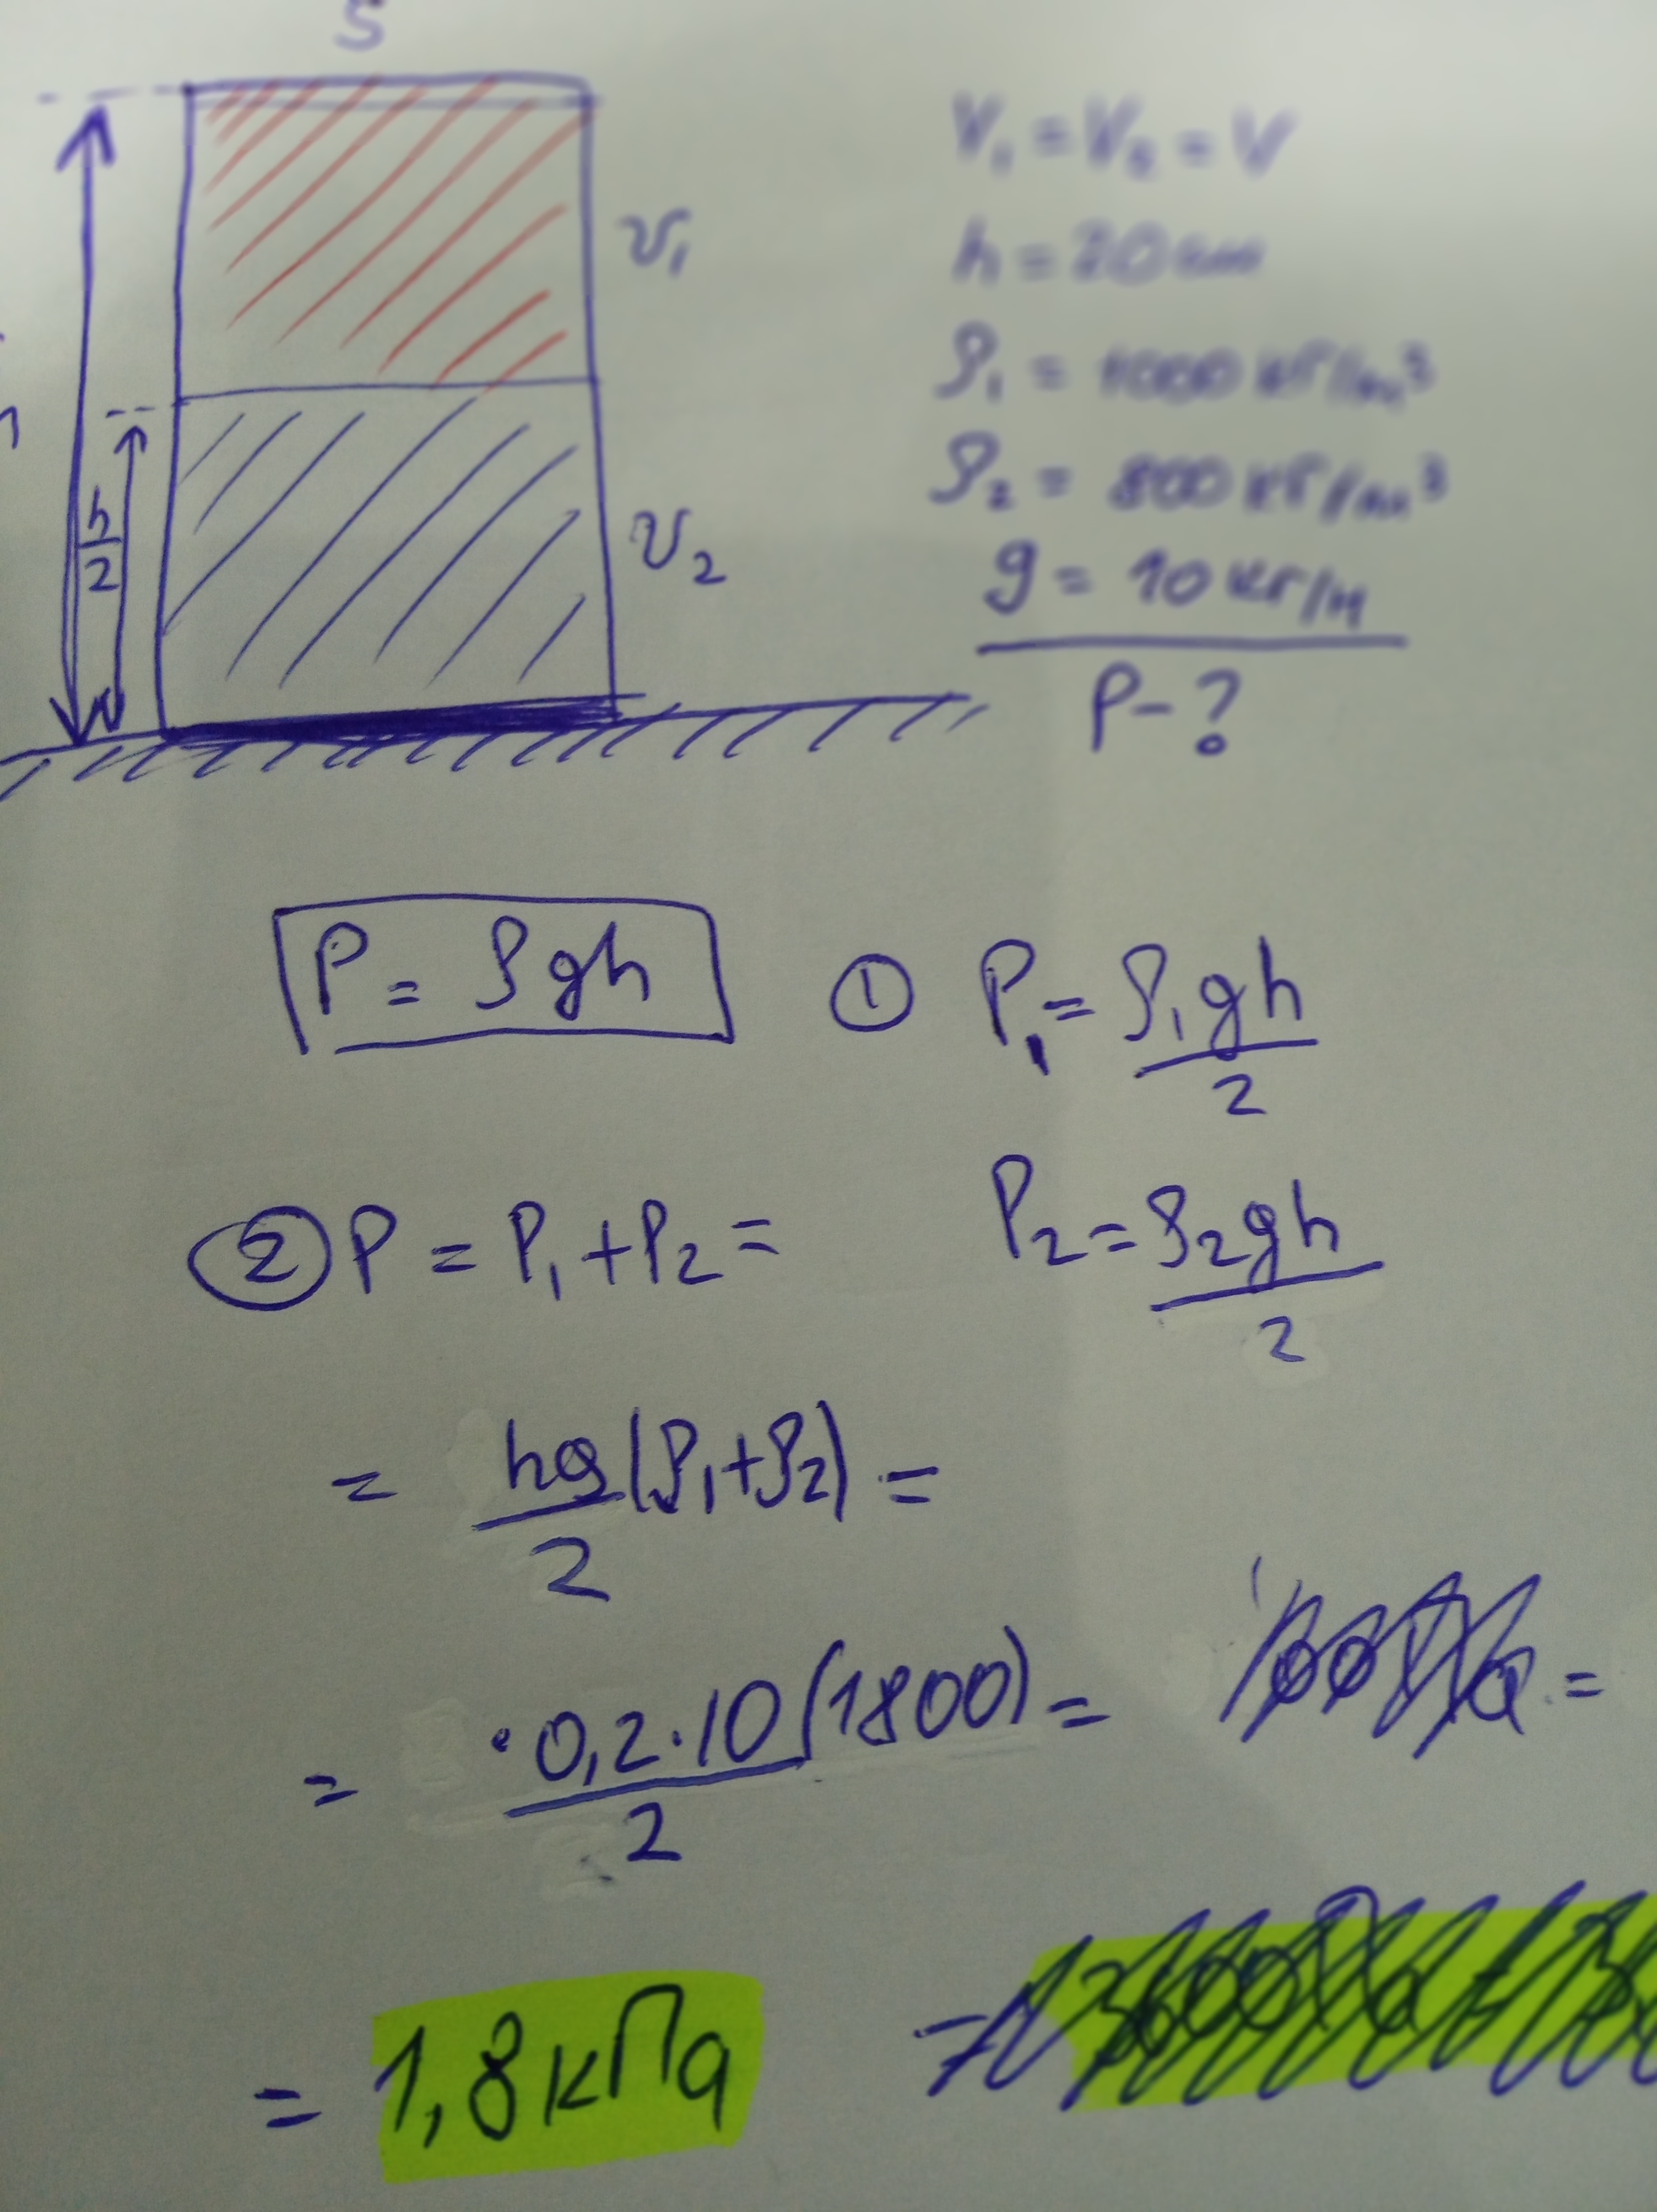 S
V₁ = V₂ = V
h = 20 см
ρ₁ = 1000 кг/м³
ρ₂ = 800 кг/м³
g = 10 кг/н
P - ?
h
h/2
V₁
V₂
P = ρgh
① P₁ = ρ₁gh/2
P₂ = ρ₂gh/2
② P = P₁ + P₂ =
= hg/2 (ρ₁+ρ₂) =
= ·0,2·10(1800)/2 =
=
= 1,8 кПа